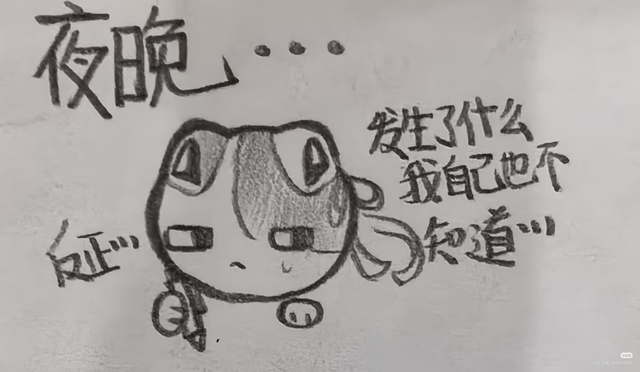 夜晚...
发生了什么
我自己也不
知道...
反正...